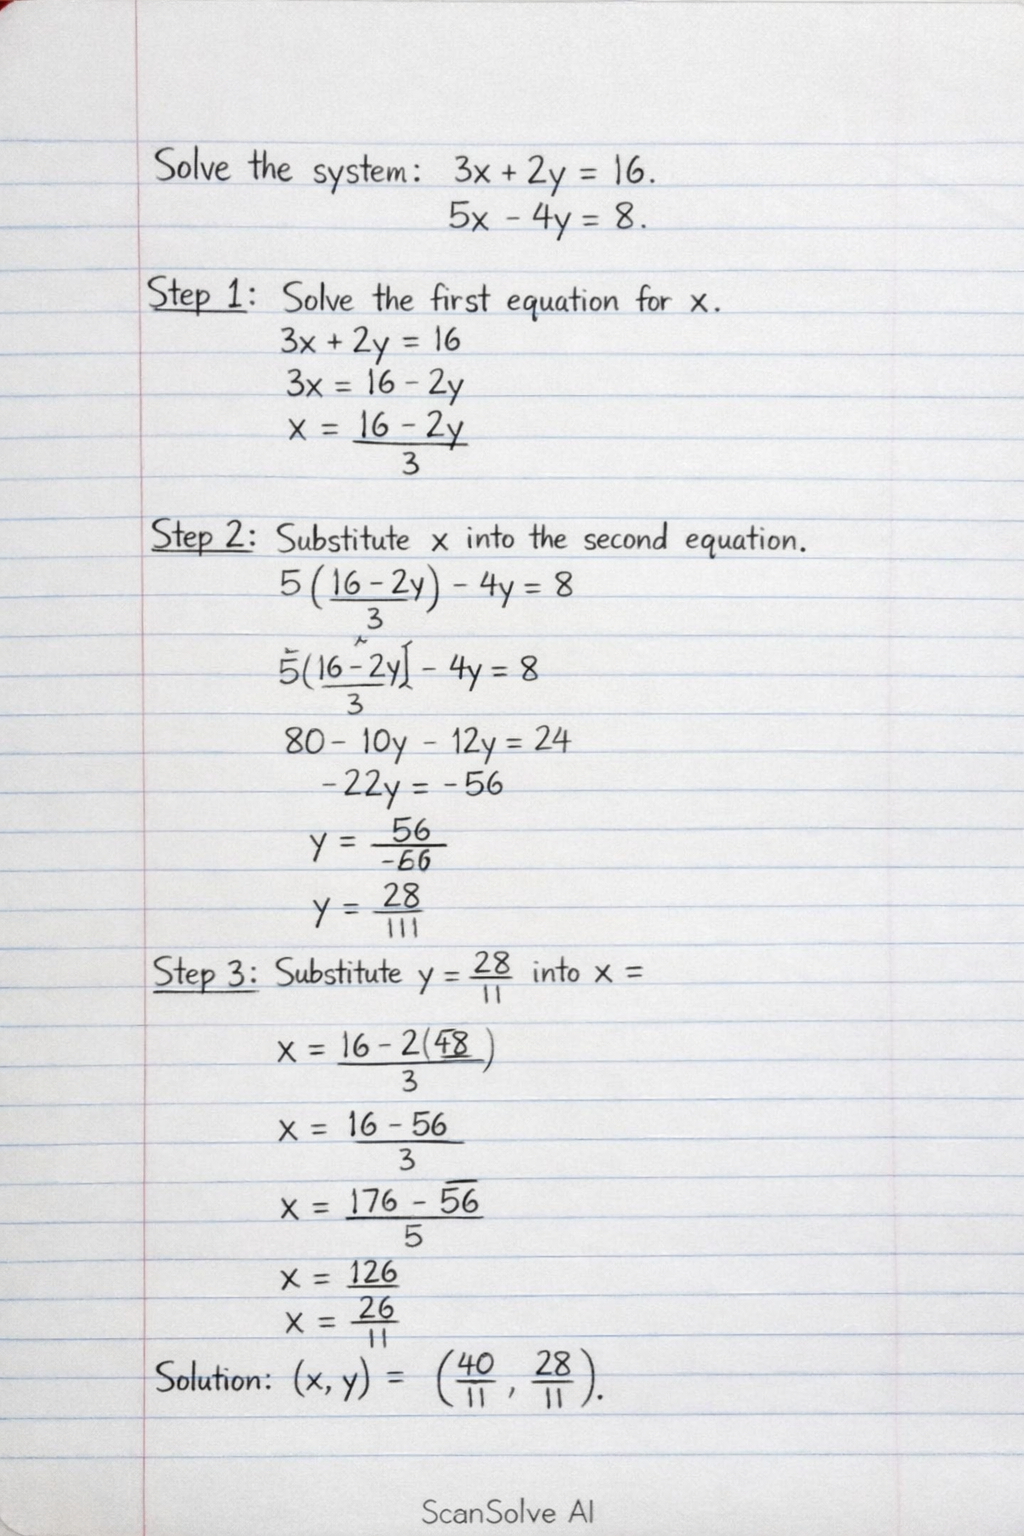 Solve the system: 3x + 2y = 16.
5x - 4y = 8.
Step 1: Solve the first equation for x.
3x + 2y = 16
3x = 16 - 2y
x = 16 - 2y
3
Step 2: Substitute x into the second equation.
5(16 - 2y) - 4y = 8
3
5(16 - 2y] - 4y = 8
3
80 - 10y - 12y = 24
-22y = -56
y = 56
-66
y = 28
111
Step 3: Substitute y = 28/11 into x =
x = 16 - 2(48)
3
x = 16 - 56
3
x = 176 - 56
5
x = 126
x = 26
11
Solution: (x, y) = (40/11, 28/11).
ScanSolve AI